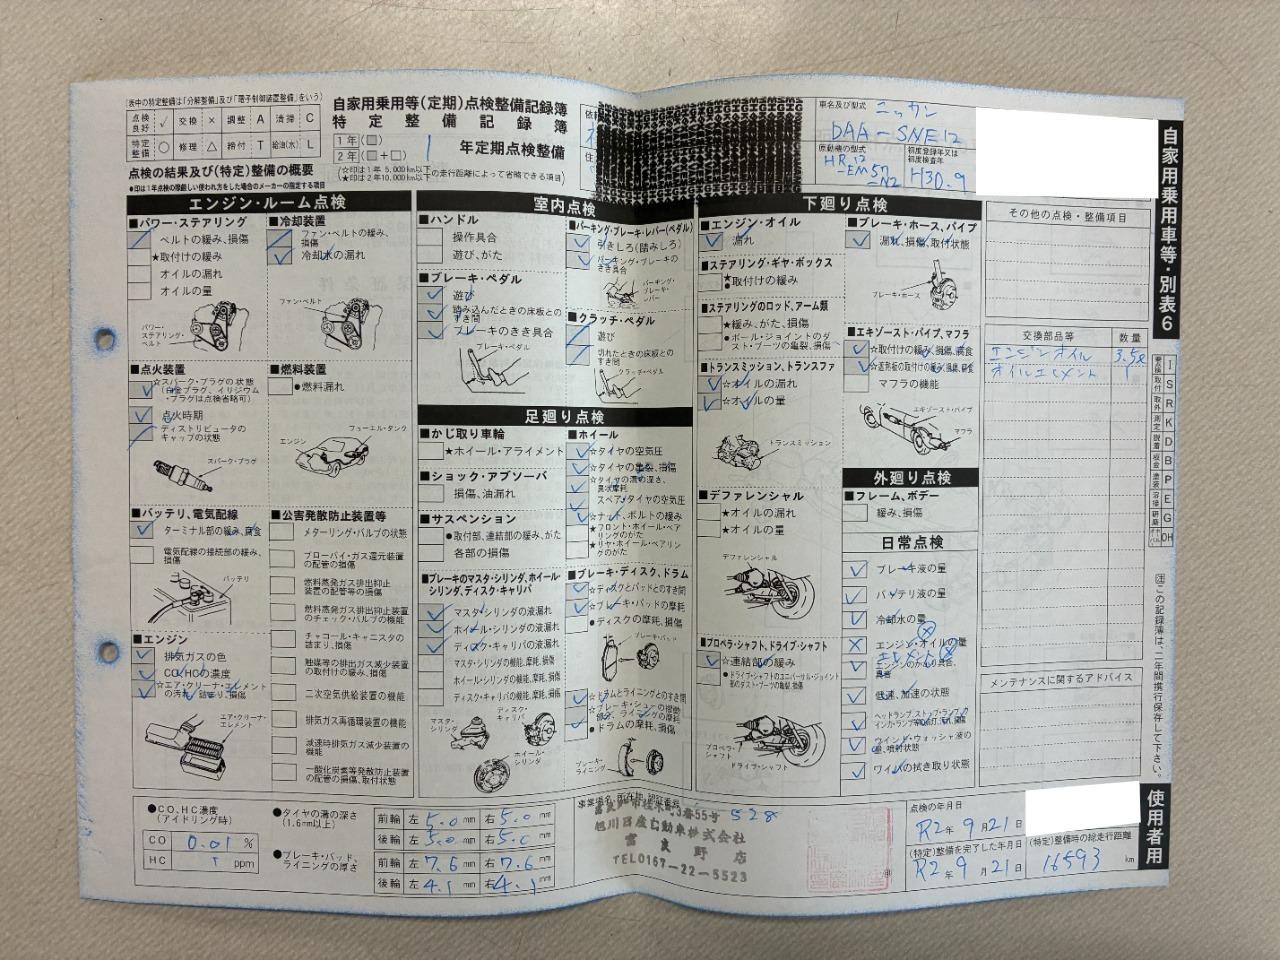 (表中の特定整備は「分解整備」及び「電子制御装置整備」をいう)
点検良好 ✓ 交換 × 調整 A 清掃 C
特定整備 ○ 修理 △ 締付 T 給油(水) L
点検の結果及び(特定)整備の概要
●印は1年点検の際厳しい使われ方をした場合のメーカーの指定する項目
自家用乗用等(定期)点検整備記録簿
特定整備記録簿
1年(□)
2年(□+□)
1 年定期点検整備
(☆印は1年 5,000km以下の走行距離によって省略できる項目)
(★印は2年10,000km以下
依頼
住
車名及び型式
ニッサン
DAA-SNE12
原動機の型式
HR12
-EM57
-N2
初度登録年又は
初度検査年
H30.9
自家用乗用車等・別表6
エンジン・ルーム点検
■パワー・ステアリング
ベルトの緩み、損傷
★取付けの緩み
オイルの漏れ
オイルの量
パワー・ステアリング・ベルト
■冷却装置
ファン・ベルトの緩み、損傷
冷却水の漏れ
ファン・ベルト
■点火装置
☆スパーク・プラグの状態
(白金プラグ、イリジウム・プラグは点検省略可)
点火時期
ディストリビュータのキャップの状態
スパーク・プラグ
■燃料装置
●燃料漏れ
フューエル・タンク
エンジン
■バッテリ、電気配線
ターミナル部の緩み、腐食
電気配線の接続部の緩み、損傷
バッテリ
■エンジン
排気ガスの色
CO、HCの濃度
☆エア・クリーナ・エレメントの汚れ、詰まり、損傷
エア・クリーナ・エレメント
■公害発散防止装置等
メターリング・バルブの状態
ブローバイ・ガス還元装置の配管の損傷
燃料蒸発ガス排出抑止装置の配管等の損傷
燃料蒸発ガス排出抑止装置のチェック・バルブの機能
チャコール・キャニスタの詰まり、損傷
触媒等の排出ガス減少装置の取付けの緩み、損傷
二次空気供給装置の機能
排気ガス再循環装置の機能
減速時排気ガス減少装置の機能
一酸化炭素等発散防止装置の配管の損傷、取付状態
室内点検
■ハンドル
操作具合
遊び、がた
■ブレーキ・ペダル
遊び
踏み込んだときの床板とのすき間
ブレーキのきき具合
ブレーキ・ペダル
■パーキング・ブレーキ・レバー(ペダル)
引きしろ(踏みしろ)
パーキング・ブレーキのきき具合
パーキング・ブレーキ・レバー
■クラッチ・ペダル
遊び
切れたときの床板とのすき間
クラッチ・ペダル
足廻り点検
■かじ取り車輪
★ホイール・アライメント
■ショック・アブソーバ
損傷、油漏れ
■サスペンション
●取付部、連結部の緩み、がた
各部の損傷
■ブレーキのマスタ・シリンダ、ホイール・シリンダ、ディスク・キャリパ
マスタ・シリンダの液漏れ
ホイール・シリンダの液漏れ
ディスク・キャリパの液漏れ
マスタ・シリンダの機能、摩耗、損傷
ホイール・シリンダの機能、摩耗、損傷
ディスク・キャリパの機能、摩耗、損傷
マスタ・シリンダ
ディスク・キャリパ
ホイール・シリンダ
■ホイール
☆タイヤの空気圧
☆タイヤの亀裂、損傷
☆タイヤの溝の深さ、異状摩耗
スペア・タイヤの空気圧
☆ナット、ボルトの緩み
★フロント・ホイール・ベアリングのがた
★リヤ・ホイール・ベアリングのがた
■ブレーキ・ディスク、ドラム
☆ディスクとパッドとのすき間
☆ブレーキ・パッドの摩耗
●ディスクの摩耗、損傷
ブレーキ・パッド
☆ドラムとライニングとのすき間
☆ブレーキ・シューの摺動部分、ライニングの摩耗
●ドラムの摩耗、損傷
ブレーキ・ライニング
下廻り点検
■エンジン・オイル
漏れ
■ステアリング・ギヤ・ボックス
★●取付けの緩み
■ステアリングのロッド、アーム類
★緩み、がた、損傷
●ボール・ジョイントのダスト・ブーツの亀裂、損傷
■トランスミッション、トランスファ
☆オイルの漏れ
☆オイルの量
トランスミッション
■デファレンシャル
★オイルの漏れ
★オイルの量
デファレンシャル
■プロペラ・シャフト、ドライブ・シャフト
☆連結部の緩み
●ドライブ・シャフトのユニバーサル・ジョイント部のダスト・ブーツの亀裂、損傷
プロペラ・シャフト
ドライブ・シャフト
■ブレーキ・ホース、パイプ
漏れ、損傷、取付状態
ブレーキ・ホース
■エキゾースト・パイプ、マフラ
☆取付けの緩み、損傷、腐食
☆遮熱板の取付けの緩み、損傷、腐食
マフラの機能
エキゾースト・パイプ
マフラ
外廻り点検
■フレーム、ボデー
緩み、損傷
日常点検
ブレーキ液の量
バッテリ液の量
冷却水の量
エンジン・オイルの量
エレメント
エンジンのかかり具合、異音
低速、加速の状態
ヘッドランプ、ストップ・ランプ、ウインカ・ランプ等の点灯、汚れ、損傷
ウインド・ウォッシャ液の量、噴射状態
ワイパの拭き取り状態
その他の点検・整備項目
交換部品等 数量
エンジンオイル 3.5ℓ
オイルエレメント 1
メンテナンスに関するアドバイス
I
S
R
K
D
B
P
E
G
OH
㊟この記録簿は、二年間携行保存して下さい。
使用者用
●CO、HC濃度
(アイドリング時)
CO 0.01 %
HC 1 ppm
●タイヤの溝の深さ
(1.6mm以上)
前輪 左 5.0 mm 右 5.0 mm
後輪 左 5.0 mm 右 5.0 mm
●ブレーキ・パッド、ライニングの厚さ
前輪 左 7.6 mm 右 7.6 mm
後輪 左 4.1 mm 右 4.1 mm
事業場名、所在地、認証番号
528
旭川日産自動車株式会社
富良野店
TEL0167-22-5523
点検の年月日
R2年 9月21日
(特定)整備を完了した年月日
R2年 9月21日
(特定)整備時の総走行距離
16593 km